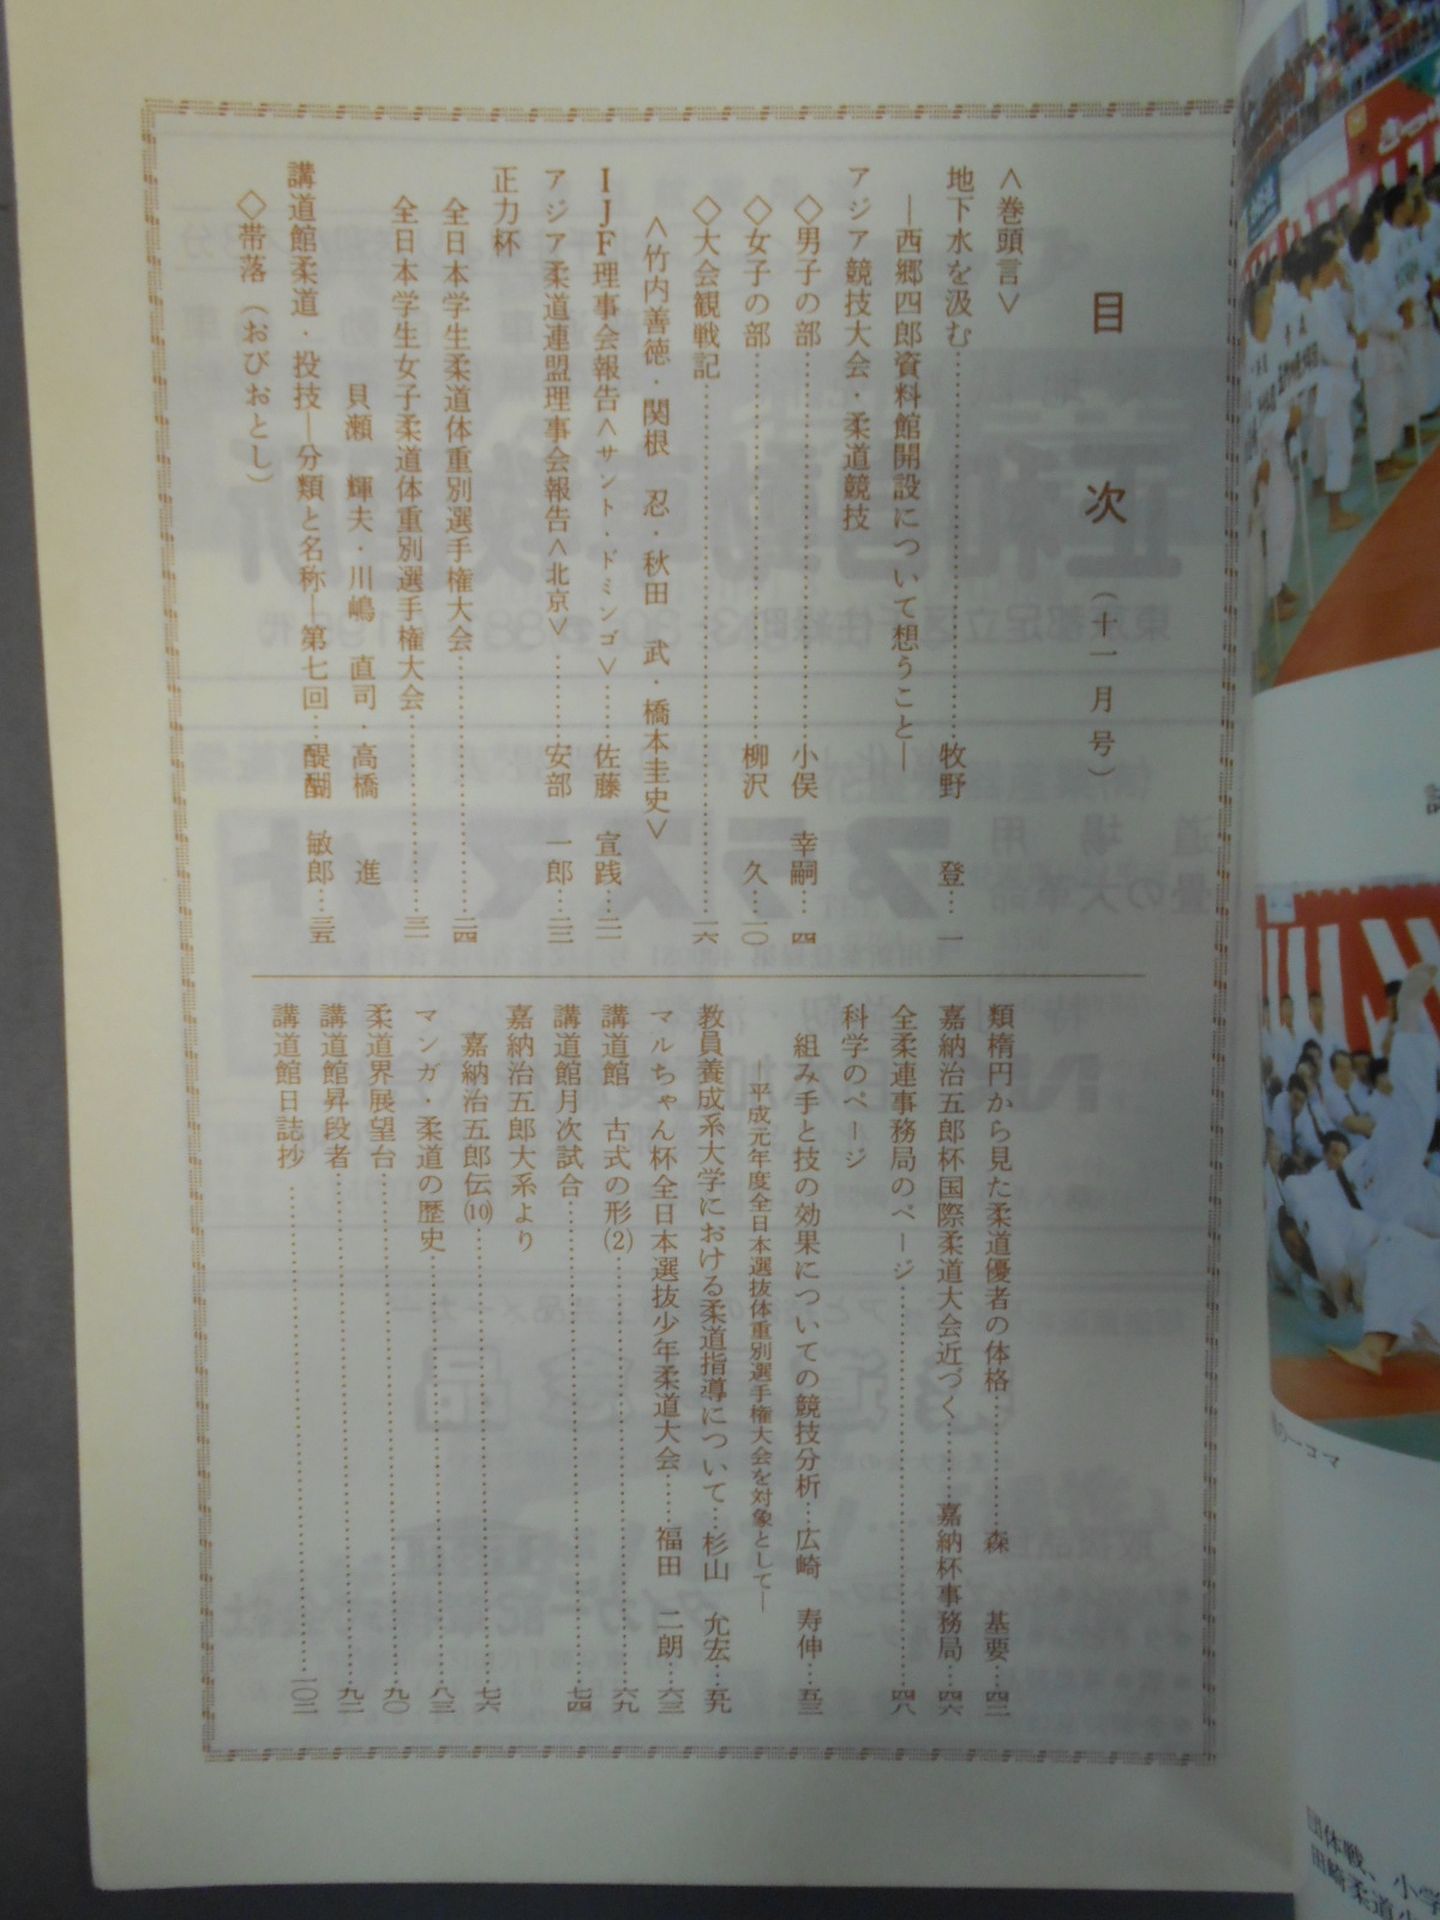 目次（十一月号）
＜巻頭言＞
地下水を汲む……牧野　登…一
―西郷四郎資料館開設について想うこと―
アジア競技大会・柔道競技
◇男子の部……小俣　幸嗣…四
◇女子の部……柳沢　久…一〇
◇大会観戦記……一六
＜竹内善徳・関根　忍・秋田　武・橋本圭史＞
IJF理事会報告＜サント・ドミンゴ＞……佐藤　宣践…二一
アジア柔道連盟理事会報告＜北京＞……安部　一郎…二三
正力杯
全日本学生柔道体重別選手権大会……二四
全日本学生女子柔道体重別選手権大会……三一
貝瀬　輝夫・川嶋　直司・高橋　進
講道館柔道・投技―分類と名称―第七回…醍醐　敏郎…三五
◇帯落（おびおとし）
類楕円から見た柔道優者の体格……森　基要…四二
嘉納治五郎杯国際柔道大会近づく……嘉納杯事務局…四六
全柔連事務局のページ……四八
科学のページ
組み手と技の効果についての競技分析…広崎　寿伸…五三
―平成元年度全日本選抜体重別選手権大会を対象として―
教員養成系大学における柔道指導について…杉山　允宏…五九
マルちゃん杯全日本選抜少年柔道大会……福田　二朗…六三
講道館　古式の形(2)……六九
講道館月次試合……七四
嘉納治五郎大系より
嘉納治五郎伝(10)……七六
マンガ・柔道の歴史……八三
柔道界展望台……九〇
講道館昇段者……九二
講道館日誌抄……一〇二
の一コマ
団体戦、小学
田崎柔道